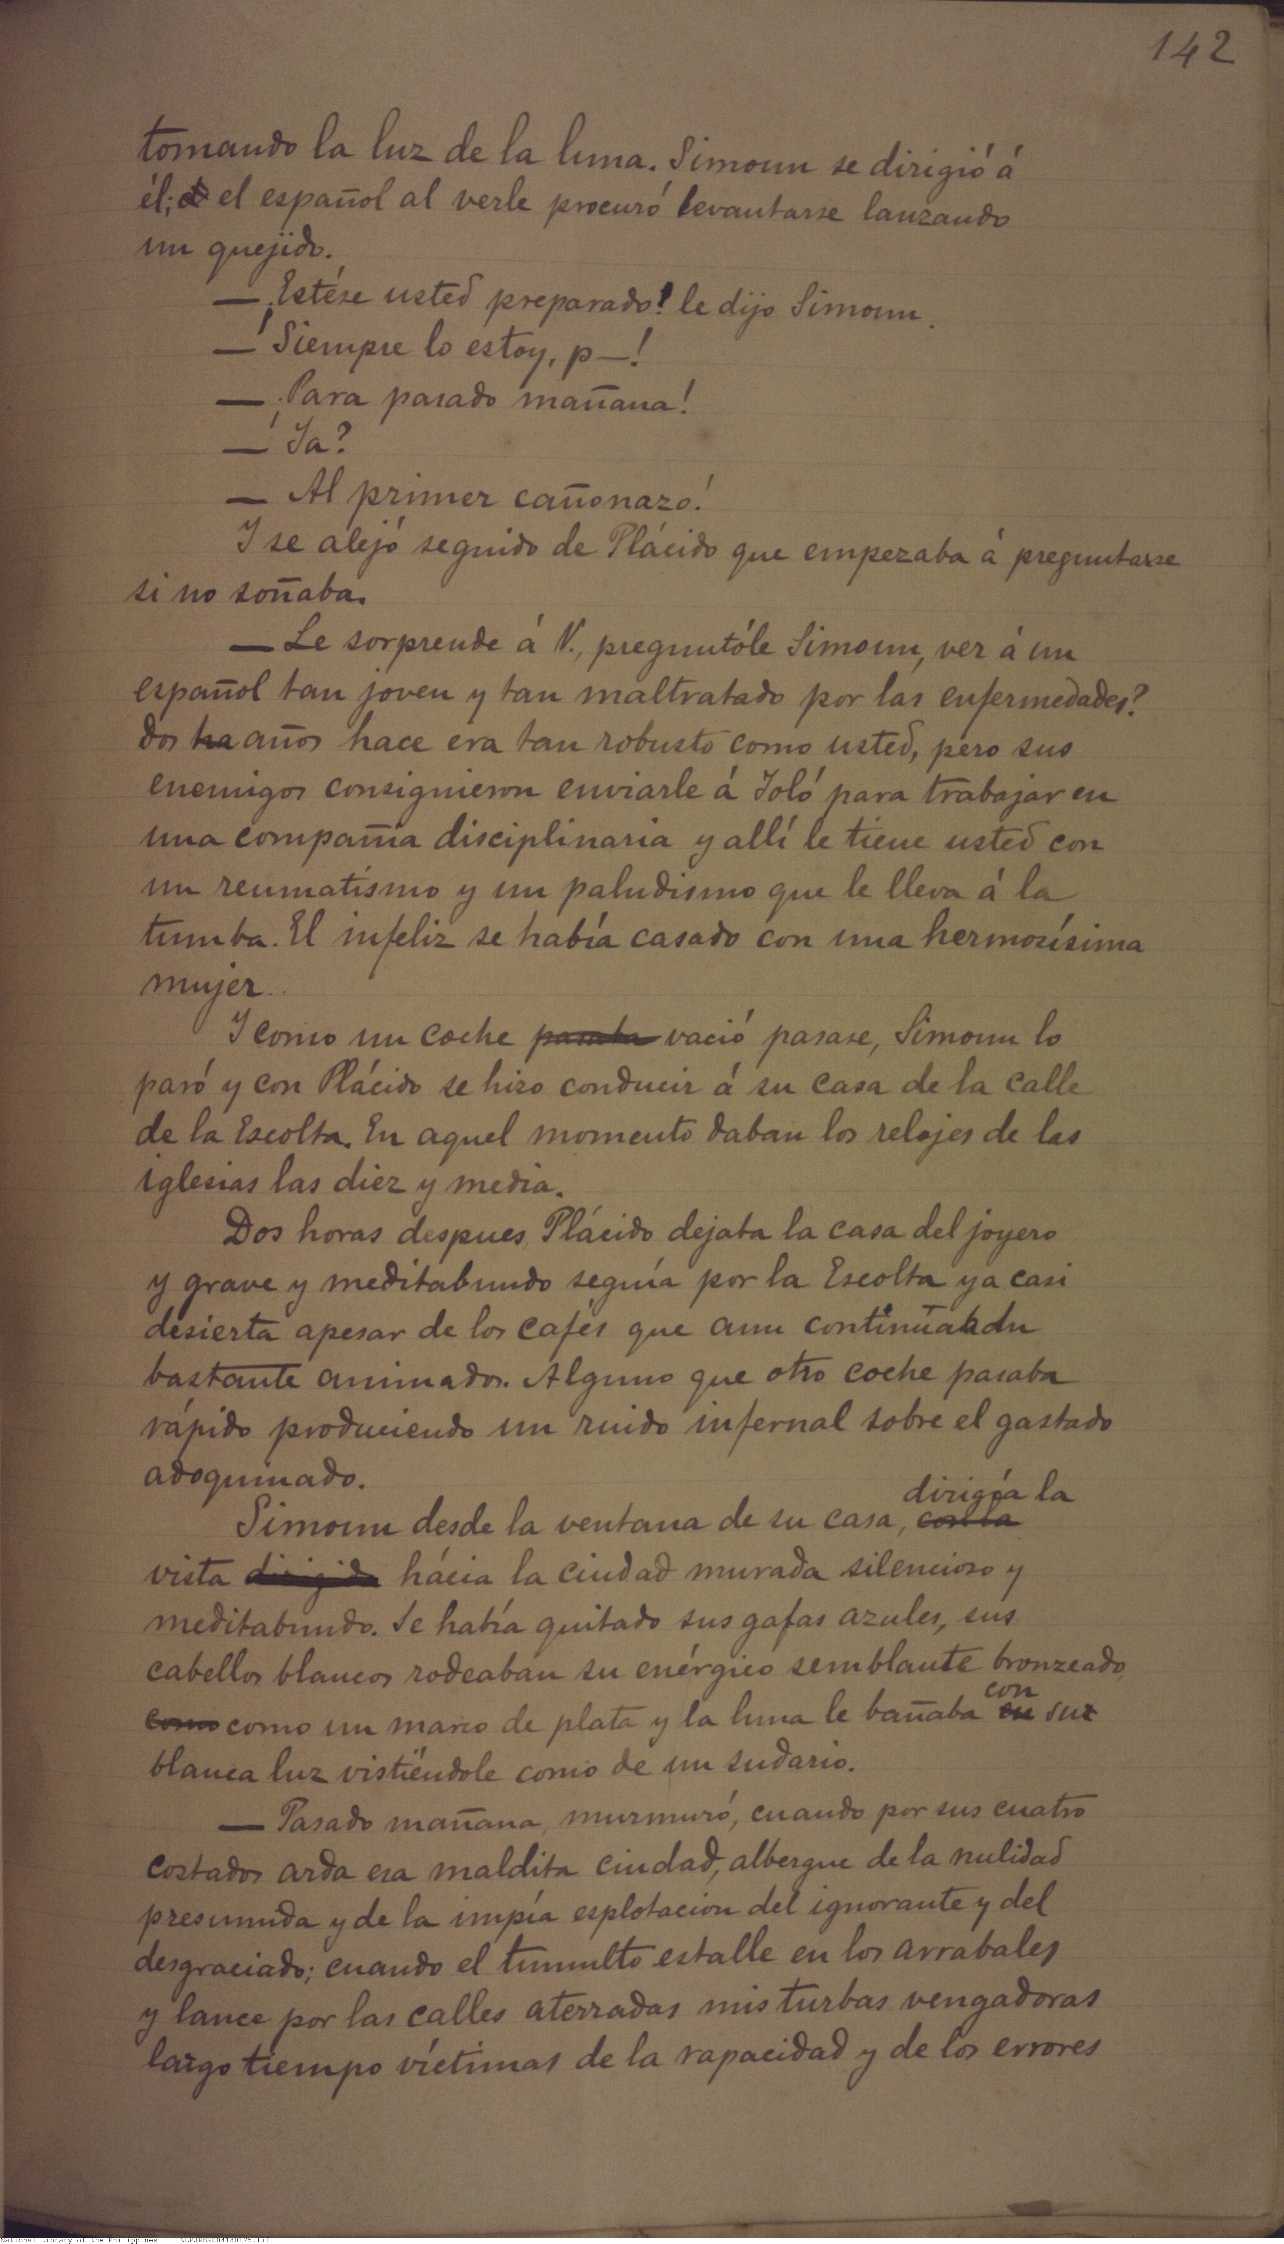 142
tomando la luz de la luna. Simoun se dirigió á
él; el español al verle procuró levantarse lanzando
un quejido.
— ¡Estése usted preparado! le dijo Simoun.
— ¡Siempre lo estoy, p—!
— ¡Para pasado mañana!
— ¿Ya?
— Al primer cañonazo!
Y se alejó seguido de Plácido que empezaba á preguntarse
si no soñaba.
— Le sorprende á V., preguntóle Simoun, ver á un
español tan joven y tan maltratado por las enfermedades?
dos ha años hace era tan robusto como usted, pero sus
enemigos consiguieron enviarle á Joló para trabajar en
una compañia disciplinaria y allí le tiene usted con
un reumatismo y un paludismo que le lleva á la
tumba. El infeliz se había casado con una hermosísima
mujer..
Y como un coche pasaba vació pasase, Simoun lo
paró y con Plácido se hizo conducir á su casa de la calle
de la Escolta. En aquel momento daban los relojes de las
iglesias las diez y media.
Dos horas despues, Plácido dejaba la casa del joyero
y grave y meditabundo seguía por la Escolta ya casi
desierta apesar de los cafés que aun continuaban
bastante animados. Alguno que otro coche pasaba
rápido produciendo un ruido infernal sobre el gastado
adoquinado.
dirigía la
Simoun desde la ventana de su casa, con la
vista dirigida hácia la ciudad murada silencioso y
meditabundo. Se había quitado sus gafas azules, sus
cabellos blancos rodeaban su enérgico semblante bronzeado,
con
como como un marco de plata y la luna le bañaba en su
blanca luz vistiéndole como de un sudario.
— Pasado mañana, murmuró, cuando por sus cuatro
costados arda esa maldita ciudad, albergue de la nulidad
presumida y de la impía esplotacion del ignorante y del
desgraciado; cuando el tumulto estalle en los arrabales
y lance por las calles aterradas mis turbas vengadoras
largo tiempo víctimas de la rapacidad y de los errores
National Library of the Philippines